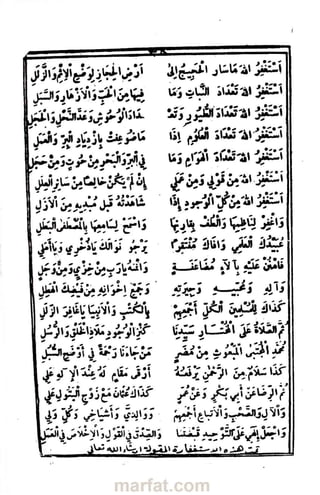 أَسْتَغْفِرُ اللهَ مَا سَارَ الْحَجِيجُ إِلَى أَرْضِ الْحِجَازِ لِوَضْعِ الْإِثْمِ وَالزَّلَلِ
أَسْتَغْفِرُ اللهَ تَعْدَادَ النَّبَاتِ وَمَا فِيهَا مِنَ الْحَبِّ وَالْأَزْهَارِ وَالسَّبَلِ
أَسْتَغْفِرُ اللهَ تَعْدَادَ الطُّيُورِ وَتَعْدَادَ الْوُحُوشِ وَعَدَّ النَّحْلِ وَالْحَجَلِ
أَسْتَغْفِرُ اللهَ تَعْدَادَ الْعُلُومِ إِذَا مَا ضُوعِفَتْ بِازْدِيَادِ الْبِرِّ وَالْعَمَلِ
أَسْتَغْفِرُ اللهَ تَعْدَادَ أَقْوَامٍ وَمَا فِي الْبَرِّ وَالْبَحْرِ مِنْ حُوتٍ وَمِنْ حَجَلِ
أَسْتَغْفِرُ اللهَ مِنْ قَوْلِي وَمِنْ عَمَلِي إِنْ لَمْ يَكُنْ خَالِصًا مِنْ سَائِرِ الْعِلَلِ
أَسْتَغْفِرُ اللهَ مِنْ كُلِّ الْوُجُودِ إِذَا شَاهَدْتُهُ قَبْلَ مُبْدِيهِ مِنَ الْأَزَلِ
وَاغْفِرْ لِنَاظِمِهَا وَالْطُفْ بِقَارِيهَا وَاسْمَحْ لِسَامِعِهَا بِالْمُصْطَفَى الْبَطَلِ
عُبَيْدُكَ الْعَلَمِي وَافَاكَ مُفْتَقِرًا يَرْجُو نَوَالَكَ يَا ذُخْرِي وَيَا أَمَلِي
فَامْنُنْ عَلَيْهِ بِآلَاءٍ مُضَاعَفَةٍ وَانْجِهِ يَا رَبِّ مِنْ خِزْيٍ وَمِنْ وَجَلِ
وَآلِهِ وَمُحِبِّيهِ وَجِيرَتِهِ وَجَمْعِ إِخْوَانِهِ مِنْ فَيْضِكَ الْهَطِلِ
كَذَاكَ لِلْمُسْلِمِينَ الْكُلِّ أَجْمَعِهِمْ بِالْكُتْبِ وَالْأَنْبِيَا يَا غَافِرَ الزَّلَلِ
ثُمَّ الصَّلَاةُ عَلَى الْمُخْتَارِ سَيِّدِنَا كَنْزِ الْوُجُودِ مَلَاذِ الْخَلْقِ وَالرُّسُلِ
مُحَمَّدِ الْمُجْتَبَى الْمَبْعُوثِ مِنْ مُضَرٍ مَنْ جَاءَنَا رَحْمَةً فِي أَوْضَحِ السُّبُلِ
كَذَا سَلَامٌ مِنَ الرَّحْمَنِ يَرْفَعُهُ أَرْقَى مَقَامٍ لَهُ عِنْدَ الْإِلَهِ عَلِي
ثُمَّ الرِّضَا عَنْ أَبِي بَكْرٍ وَعَنْ عُمَرٍ كَذَاكَ عُثْمَانَ مَعْ زَوْجِ الْبَتُولِ عَلِي
وَالْآلِ وَالصَّحْبِ وَالْأَتْبَاعِ أَجْمَعِهِمْ وَوَالِدَيَّ وَأَشْيَاخِي وَكُلِّ وَلِي
وَاجْعَلْ إِلَهِي عَلَى التَّوْحِيدِ قَبْضَتَنَا وَالصِّدْقِ فِي الْقَوْلِ وَالْإِخْلَاصِ فِي الْعَمَلِ
تمت هذه الاستغفارة المقبولة ان شاء الله تعالى
marfat.com